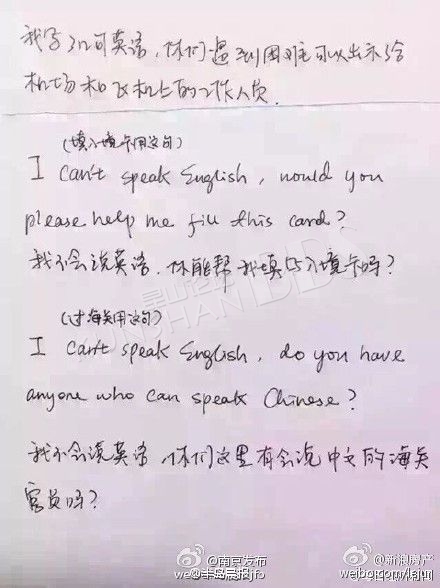 我写了几句英语,你们遇到困难可以出示给
机场和飞机上的工作人员.
(填入境卡用这句)
I can't speak English, would you
please help me fill this card?
我不会说英语,你能帮我填写入境卡吗?
(过海关用这句)
I can't speak English, do you have
anyone who can speak Chinese?
我不会说英语,你们这里有会说中文的海关
官员吗?
@南京发布
@新浪房产
we@半岛晨报jfo
weibo.com/leju